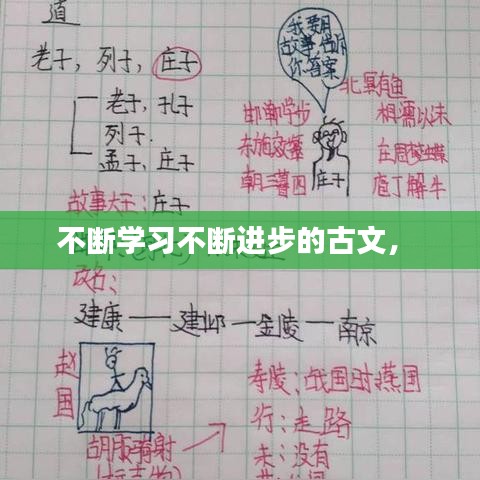 道
老子，列子，庄子
我要用
故事告诉
你答案
老子，孔子
列子.
孟子、庄子
故事大王：庄子
北冥有鱼
邯郸学步
相濡以沫
东施效颦
庄周梦蝶
朝三暮四
庖丁解牛
庄子
不断学习不断进步的古文，
改名：
建康——建邺—金陵—南京
赵国
胡服骑射
寿陵：战国时燕国
行：走路
未：没有